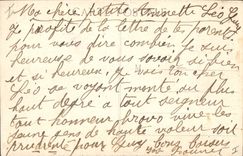 Mes chers petits Antoinette Léo Guy
Je profite de la lettre de tes parents
pour vous dire comien je suis
heureuse de vous savoir si bien
et si heureux, je vois ton cher
Léo se voyant monté au plus
haut degré à tout seigneur
tout honneur, bravo vive les
jeunes gens de haute valeur soit
prudente pour Guy bons baisers